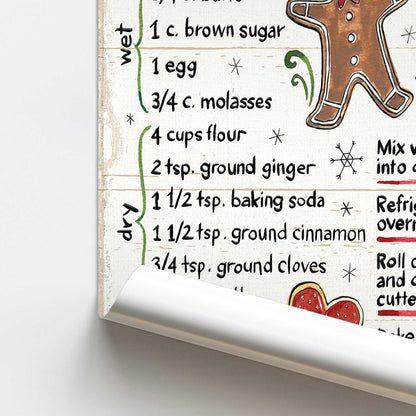 wet
1 c. brown sugar
1 egg
3/4 c. molasses
dry
4 cups flour
2 tsp. ground ginger
1 1/2 tsp. baking soda
1 1/2 tsp. ground cinnamon
3/4 tsp. ground cloves
Mix
into
Roll
and